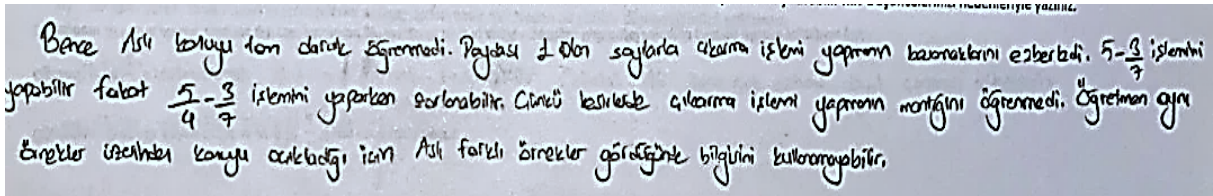 nedenleriyle yazınız.
Bence Aslı konuyu tam olarak öğrenmedi. Paydası 1 olan sayılarla çıkarma işlemi yapmanın basamaklarını ezberledi. 5-3/7 işlemini
yapabilir fakat 5/4-3/7 işlemini yaparken zorlanabilir. Çünkü kesirlerde çıkarma işlemi yapmanın mantığını öğrenmedi. Öğretmen aynı
örnekler üzerinden konuyu açıkladığı için Aslı farklı örnekler gördüğünde bilgisini kullanamayabilir.